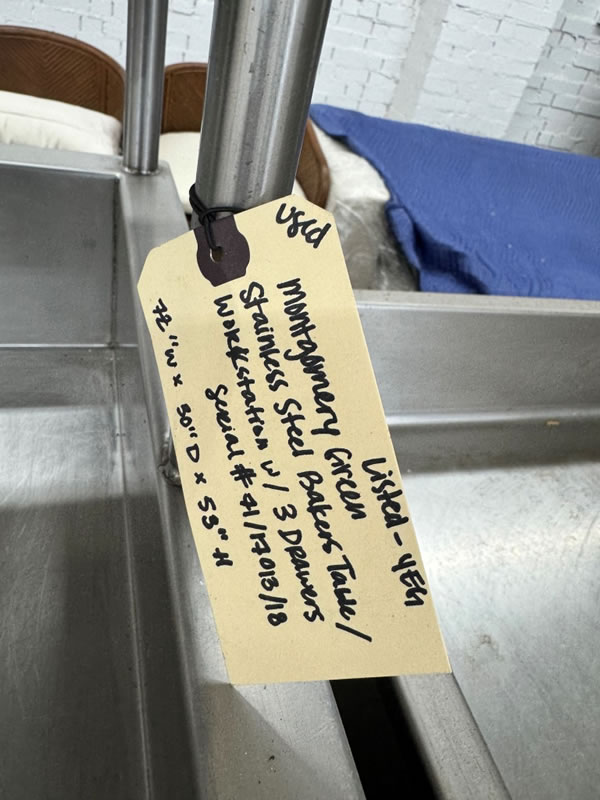 Used
Listed - YES
Montgomery Green
Stainless Steel Bakers Table/
Workstation w/ 3 Drawers
Serial # 41/17013/18
72"W x 30"D x 53"H